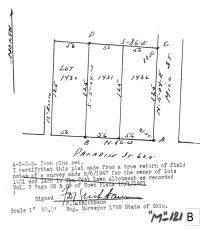 NORTH
D
56 S-86-E 56
C
LOT
1430
1431
1432
125
125
N-5-04-E
MILL ST.
16' ALLEY
56 56
B
N-86-W
A
PARADISE ST. 60.0'
A-B-C-D- Iron pins set.
I certifythat this plat made from a true return of field
notes of a survey made 8/6/1947 for the owner of lots
1431 and 1432 in The East Lawn Allotment as recorded
Vol. 3 Page 88 & 89 of Town Plats
signed
Scale 1" 50.0' Reg. Surveyor 1799 State of Ohio.
"M"-121 B